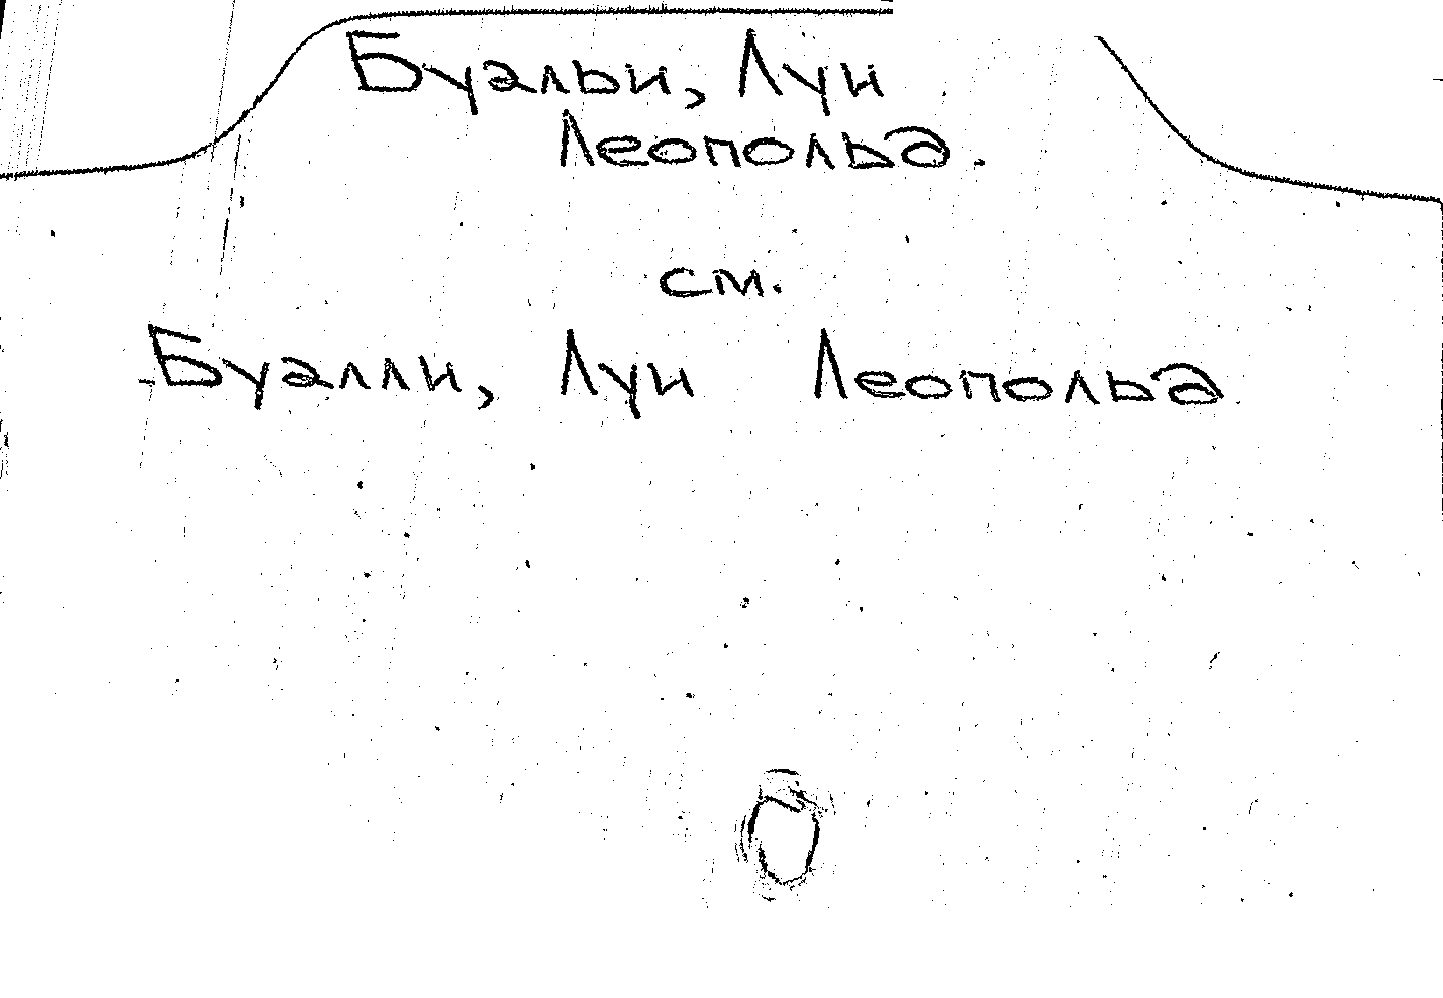 Буальи, Луи
Леопольд.
см.
Буалли, Луи Леопольд